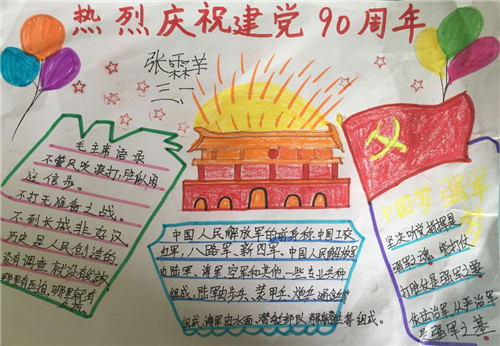 热烈庆祝建党90周年
张霖羊
三、一
毛主席语录
不管风吹浪打,胜似闲
这信步。
不打无准备之战。
不到长城非好汉
历史是人民创造的
没有调查就没有发
哪里有
中国人民解放军的前身称中国工农
红军,八路军、新四军。中国人民解放军
由陆军、海军、空军和其他一些专业兵种
组成,陆军由步兵、装甲兵、炮兵、通信兵
组成,海军由水面、潜艇部队、等组成。
中国梦 强军
坚决听党指挥是
强军之魂,能打仗
打胜仗是强军之要
依法治军、从严治军
是强军之基